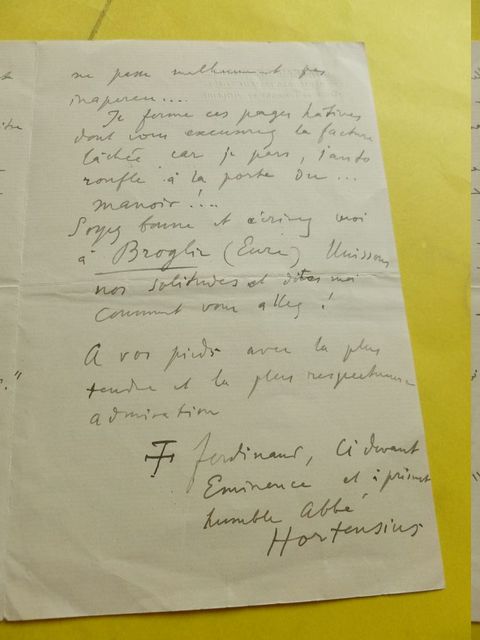 ne passe malheureusement pas
inaperçu....
Je ferme ces pages hâtives
dont vous excuserez la facture
lâchée car je pars, l'auto
ronfle à la porte du...
manoir !...
Soyez bonne et écrivez moi
à Broglie (Eure) Unissons
nos solitudes et dites moi
comment vous allez !
A vos pieds avec la plus
tendre et la plus respectueuse
admiration
Ferdinand, Ci devant
Eminence et à présent
humble Abbé
Hortensius